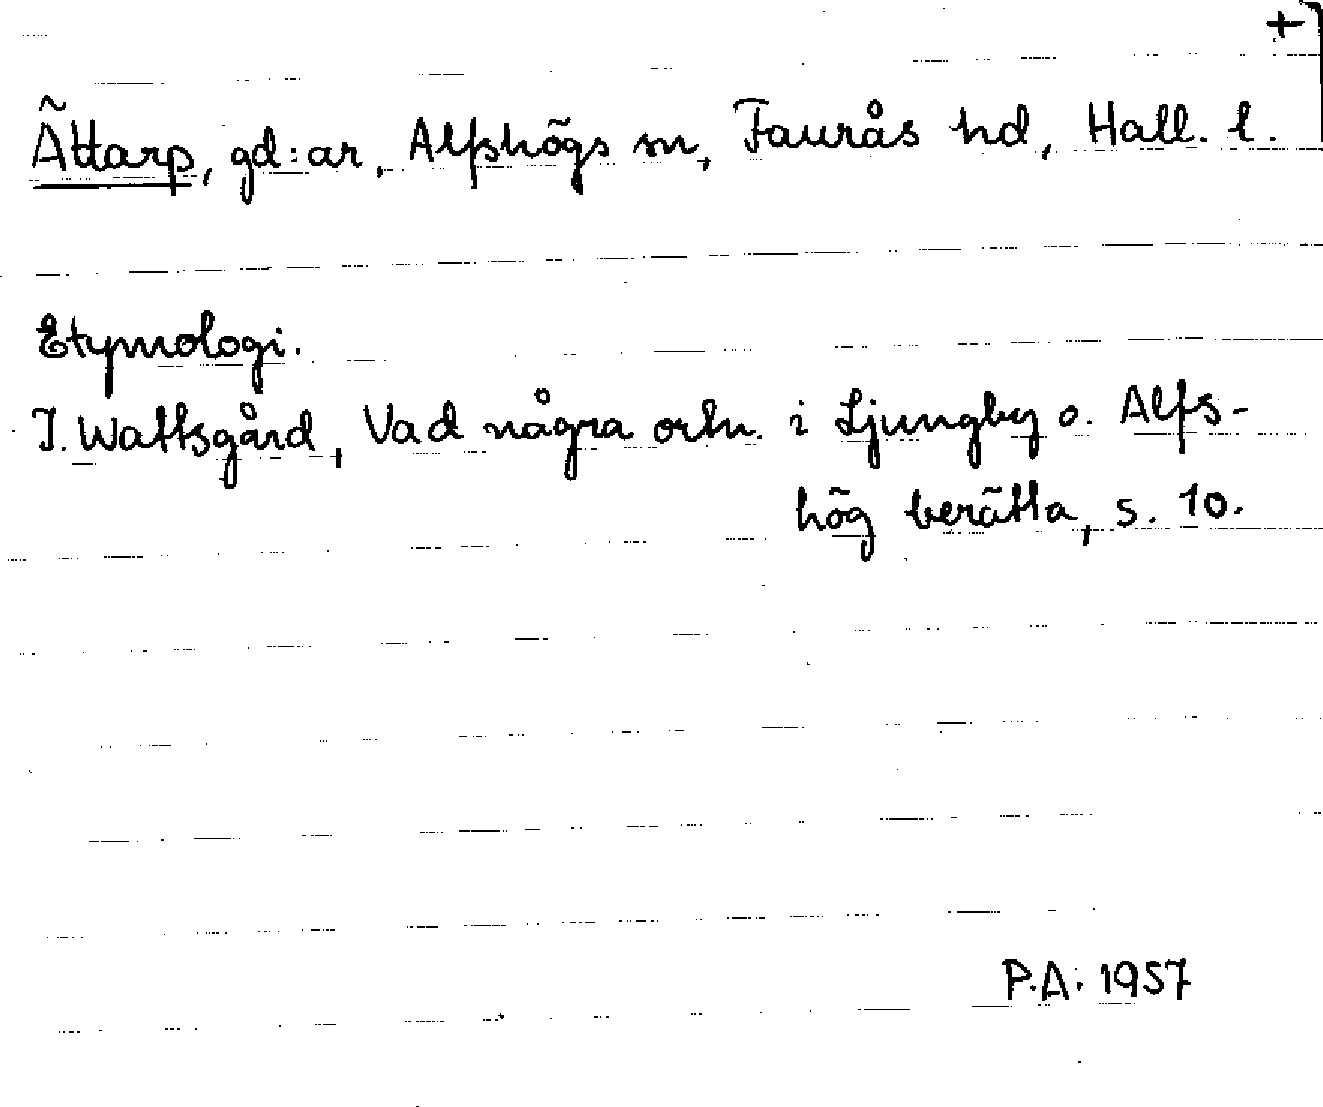 +
Ättarp, gd:ar, Alfshögs sn, Faurås hd, Hall. l.
Etymologi.
I. Wattsgård, Vad några ortn. i Ljungby o. Alfs-
hög berätta, s. 10.
P.A. 1957